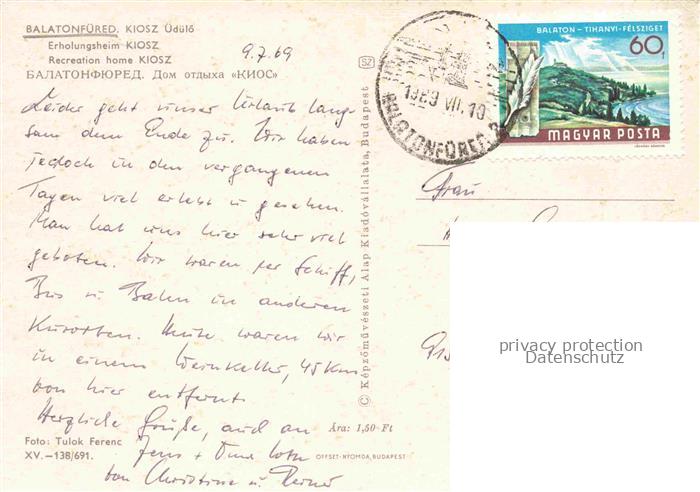 BALATONFÜRED. KIOSZ Üdülő
Erholungsheim KIOSZ
Recreation home KIOSZ
БАЛАТОНФЮРЕД. Дом отдыха «КИОС»
9.7.69
Leider geht unser Urlaub lang-
sam dem Ende zu. Wir haben
jedoch in den vergangenen
Tagen viel erlebt u. gesehen.
Man hat uns hier sehr viel
geboten. Wir waren per Schiff,
Bus u. Bahn in anderen
Kurorten. Heute waren wir
in einem Weinkeller, 45 Km
von hier entfernt.
Herzliche Grüße, auch an
Jens + Oma
von Christine u.
Foto: Tulok Ferenc
XV.—138/691.
Ára: 1,50 Ft
OFFSET-NYOMDA, BUDAPEST
SZ
© Képzőművészeti Alap Kiadóvállalata, Budapest
1969 VII. 10
BALATONFÜRED 2
BALATON - TIHANYI-FÉLSZIGET
60f
MAGYAR POSTA
Frau
privacy protection
Datenschutz